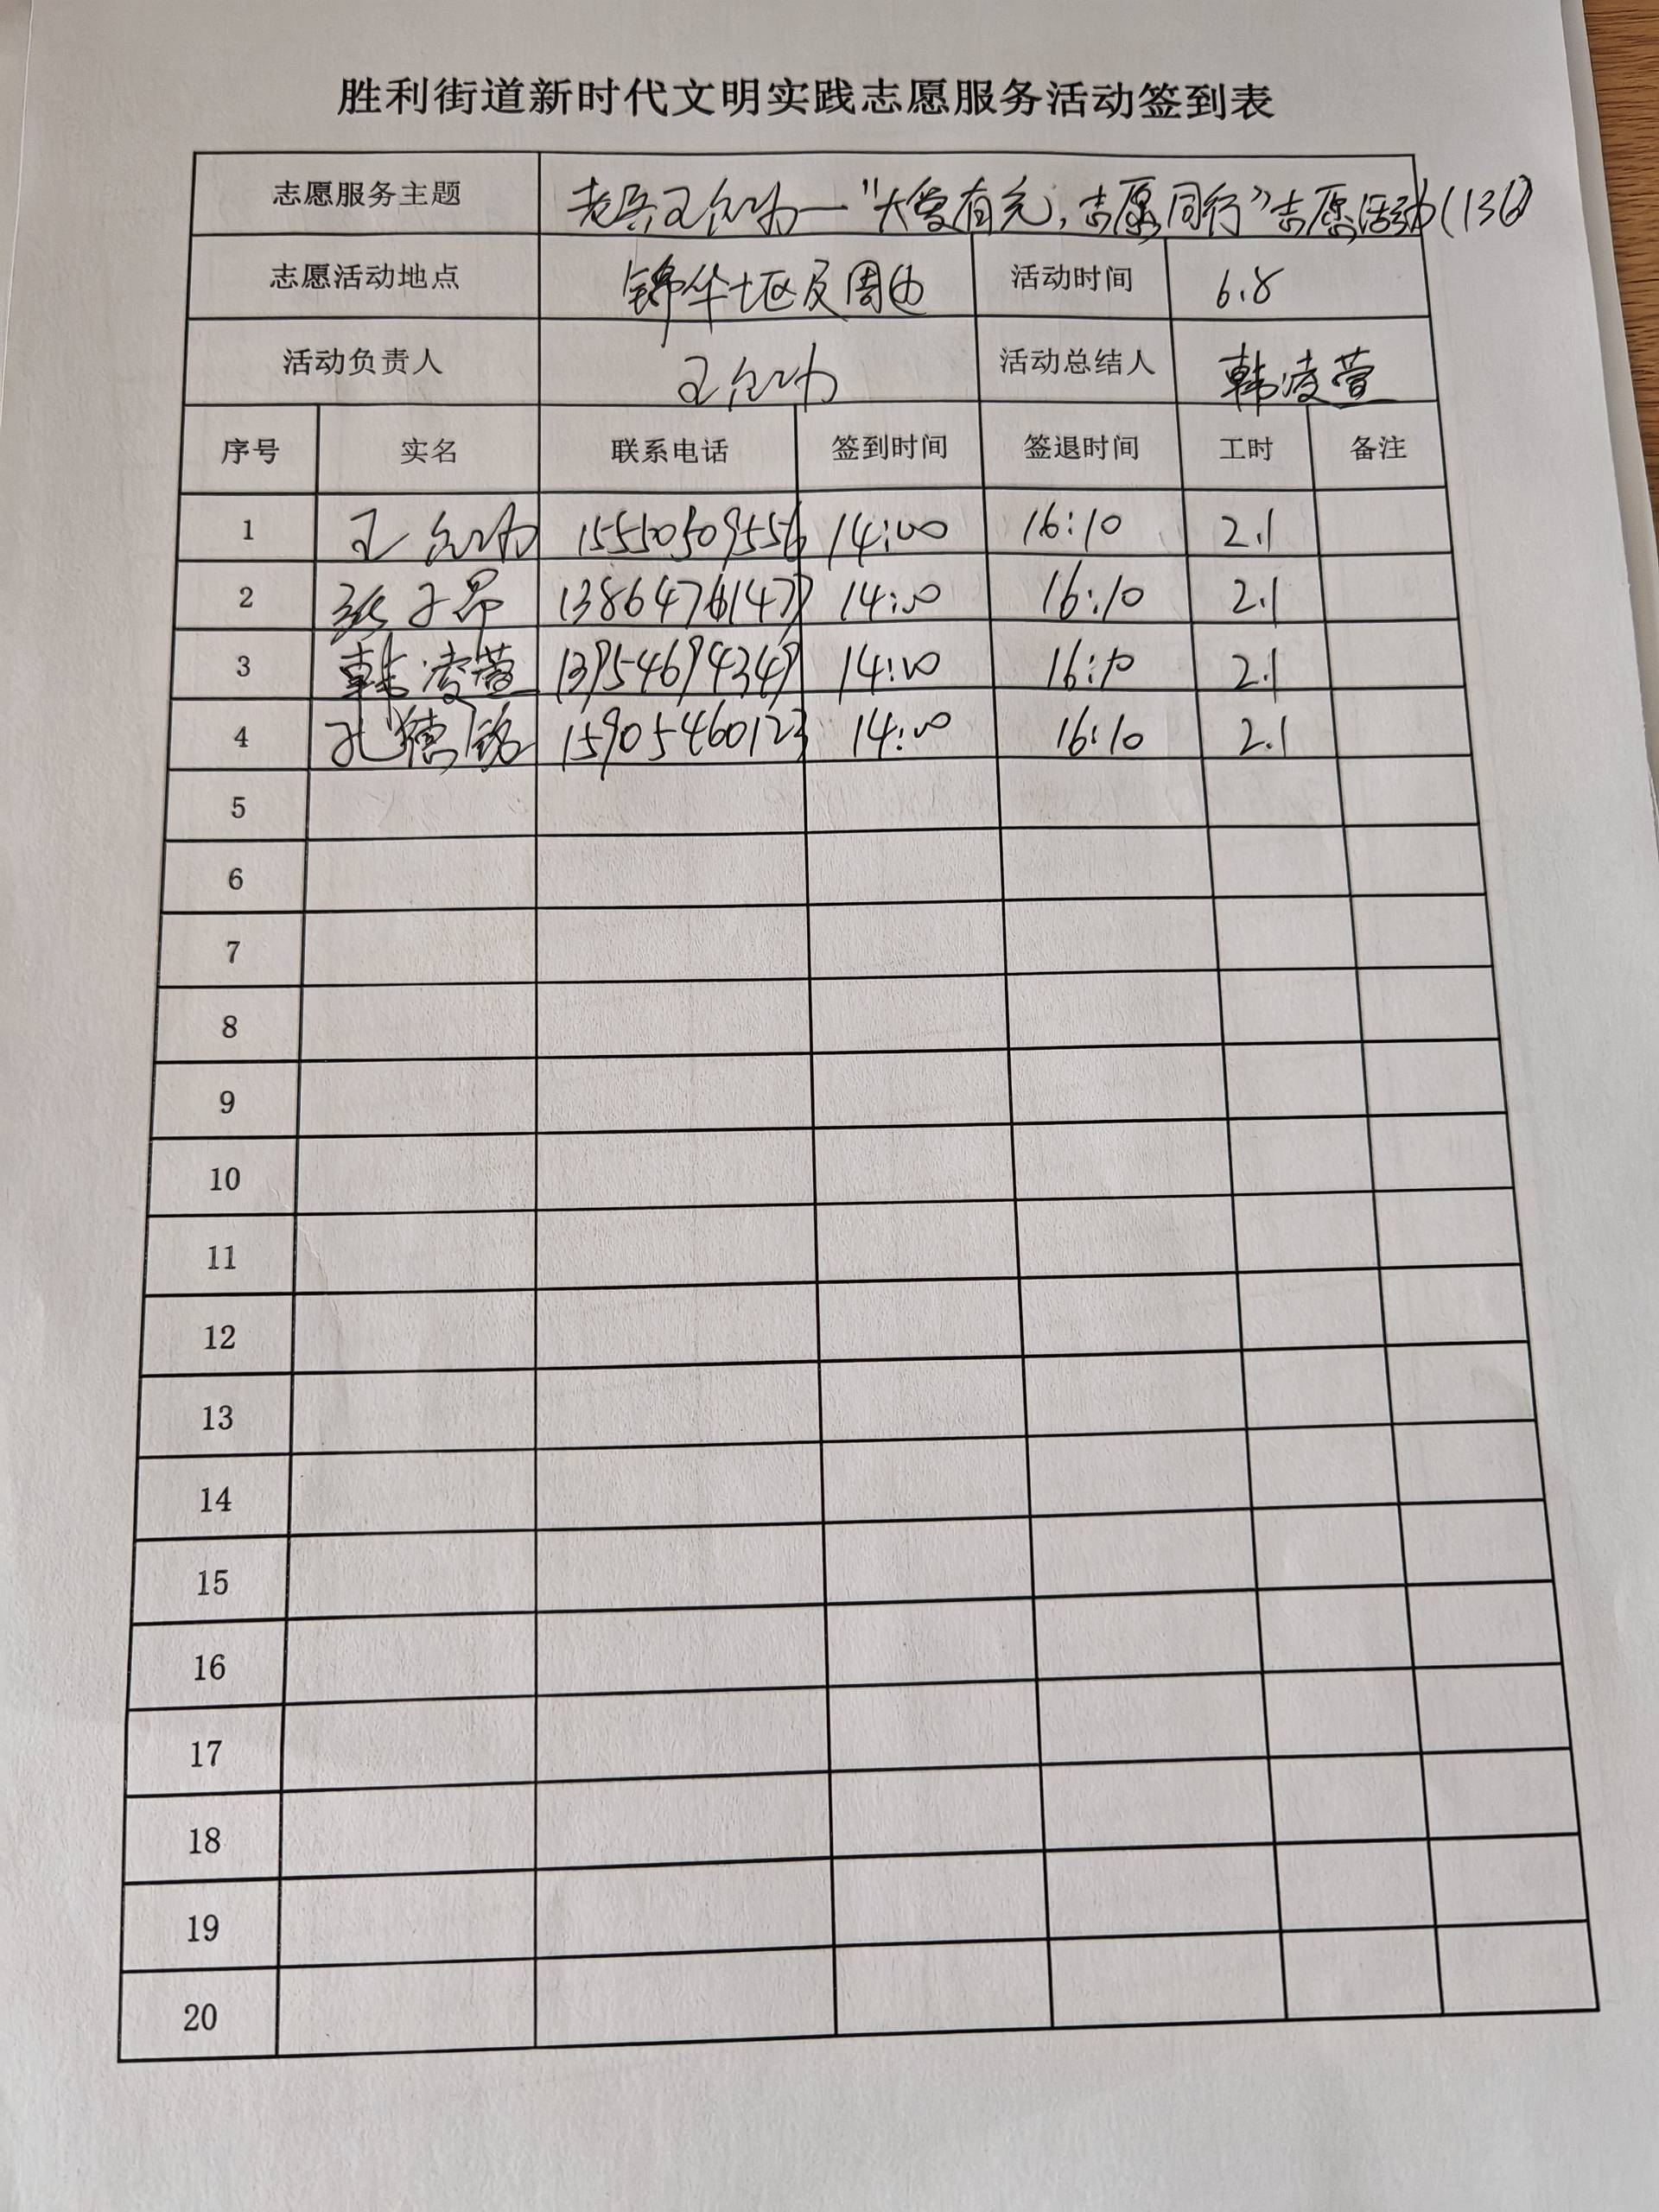 胜利街道新时代文明实践志愿服务活动签到表
志愿服务主题 老兵王允功—"大爱有光,志愿同行"志愿活动(136)
志愿活动地点 锦华七区及周边 活动时间 6.8
活动负责人 王允功 活动总结人 韩凌萱
序号 实名 联系电话 签到时间 签退时间 工时 备注
1 王允功 15550509556 14:00 16:10 2.1
2 张子昂 13864761477 14:00 16:10 2.1
3 韩凌萱 13954694349 14:00 16:10 2.1
4 孔德铭 15905460123 14:00 16:10 2.1
5
6
7
8
9
10
11
12
13
14
15
16
17
18
19
20